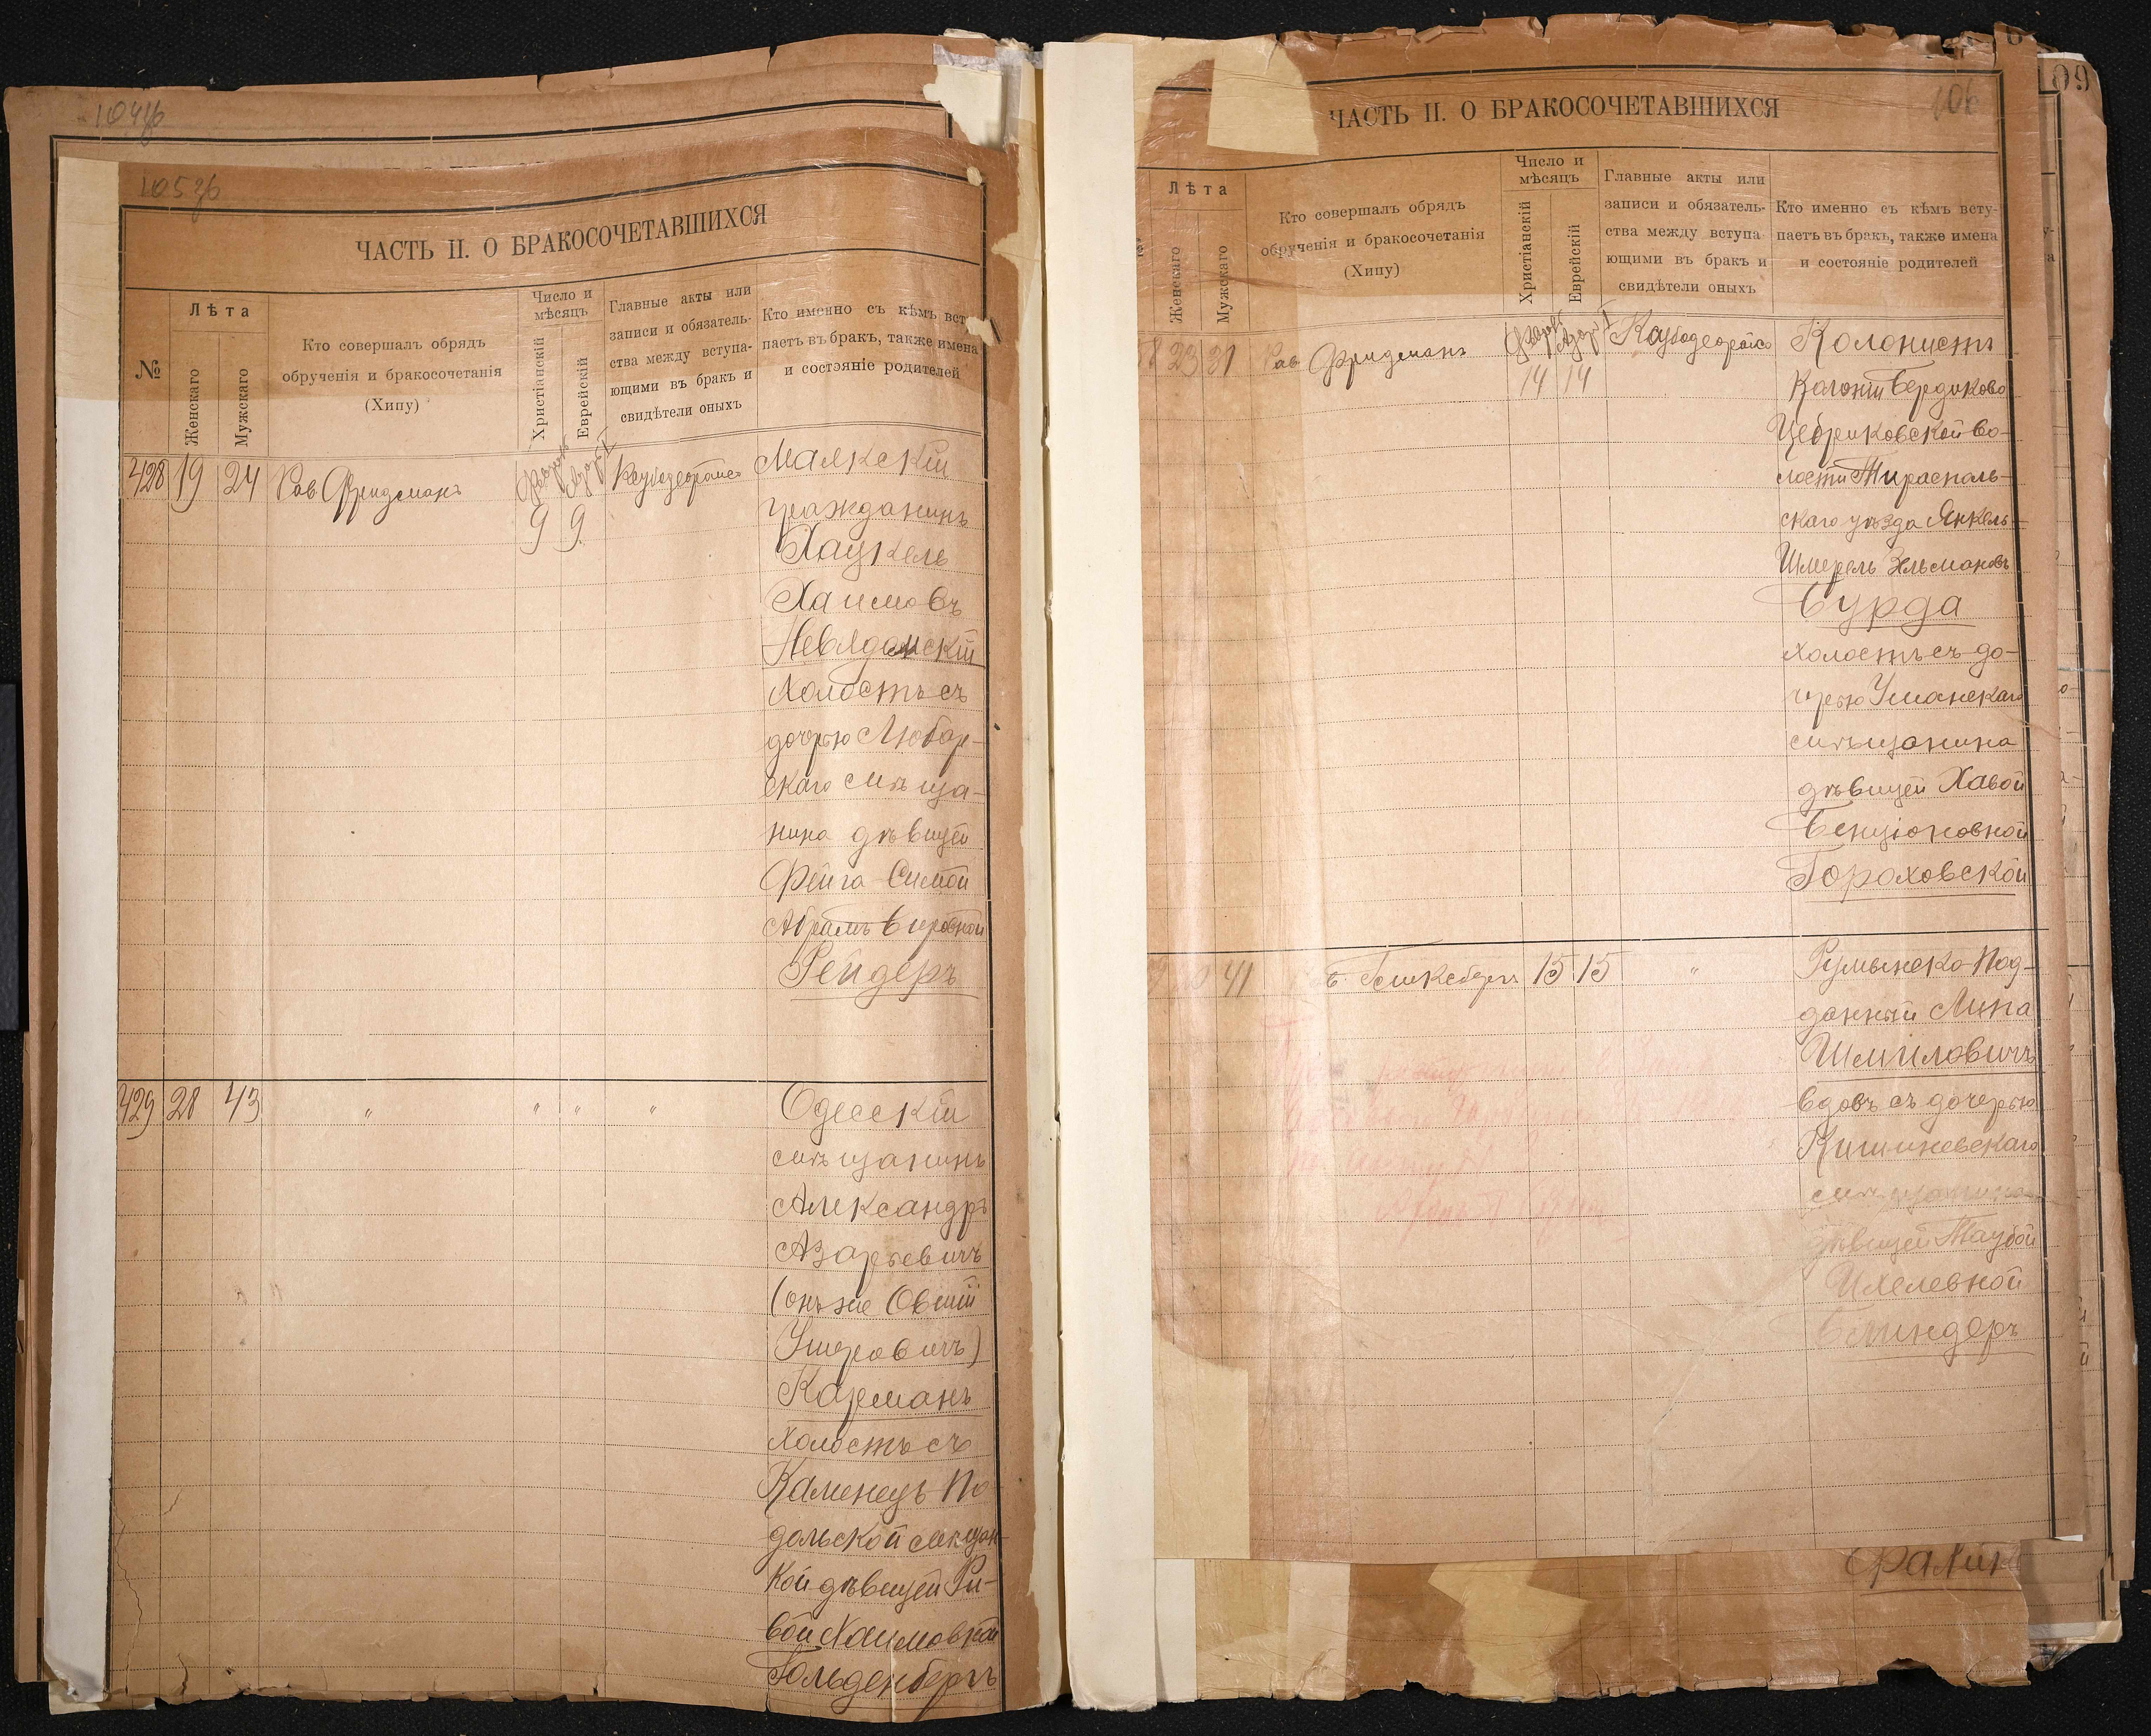 ЧАСТЬ II. О БРАКОСОЧЕТАВШИХСЯ
№
Лѣта
Женскаго
Мужскаго
Кто совершалъ обрядъ
обрученія и бракосочетанія
(Хипу)
Число и
мѣсяцъ
Христіанскій
Еврейскій
Главные акты или
записи и обязатель-
ства между вступа-
ющими въ бракъ и
свидѣтели оныхъ
Кто именно съ кѣмъ всту
паетъ въ бракъ, также имена
и состояніе родителей
428 19 24 Рав Фридманъ
9 9
гражданинъ
Хаскель
Хаимовъ
Невядомскій
холостъ съ
дочерью Любар-
скаго мѣща-
нина дѣвицей
Фейга-Симой
Рейдеръ
429 28 43 " " " "
Одесскій
мѣщанинъ
Александръ
Азарьевичъ
(онъ же Овшій
Ушеровичъ)
Карманъ
холостъ съ
Каменецъ По
дольской мѣщан
кой дѣвицей Ри-
вой Хаимовной
Гольденбергъ
ЧАСТЬ II. О БРАКОСОЧЕТАВШИХСЯ
106
109
Лѣта
Женскаго
Мужскаго
Кто совершалъ обрядъ
обрученія и бракосочетанія
(Хипу)
Число и
мѣсяцъ
Христіанскій
Еврейскій
Главные акты или
записи и обязатель-
ства между вступа-
ющими въ бракъ и
свидѣтели оныхъ
Кто именно съ кѣмъ всту-
паетъ въ бракъ, также имена
и состояніе родителей
23 21 Рав Фридманъ
14 14
Колонистъ
Колоніи
Цебриковской во-
лости Тирасполь-
скаго уѣзда Янкель-
Шмерель Зельмановъ
Бурда
холостъ съ до-
черью Уманскаго
мѣщанина
дѣвицей Хавой
Бенціоновной
Гороховской
41
15 15 "
Румынско-Под-
данный Липа
Шмиловичъ
вдовъ съ дочерью
Кишиневскаго
мѣщанина
дѣвицей Таубой
Ихелевной
Блиндеръ